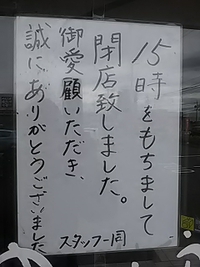 15時をもちまして
閉店致しました。
御愛顧いただき、
誠にありがとうございました
スタッフ一同